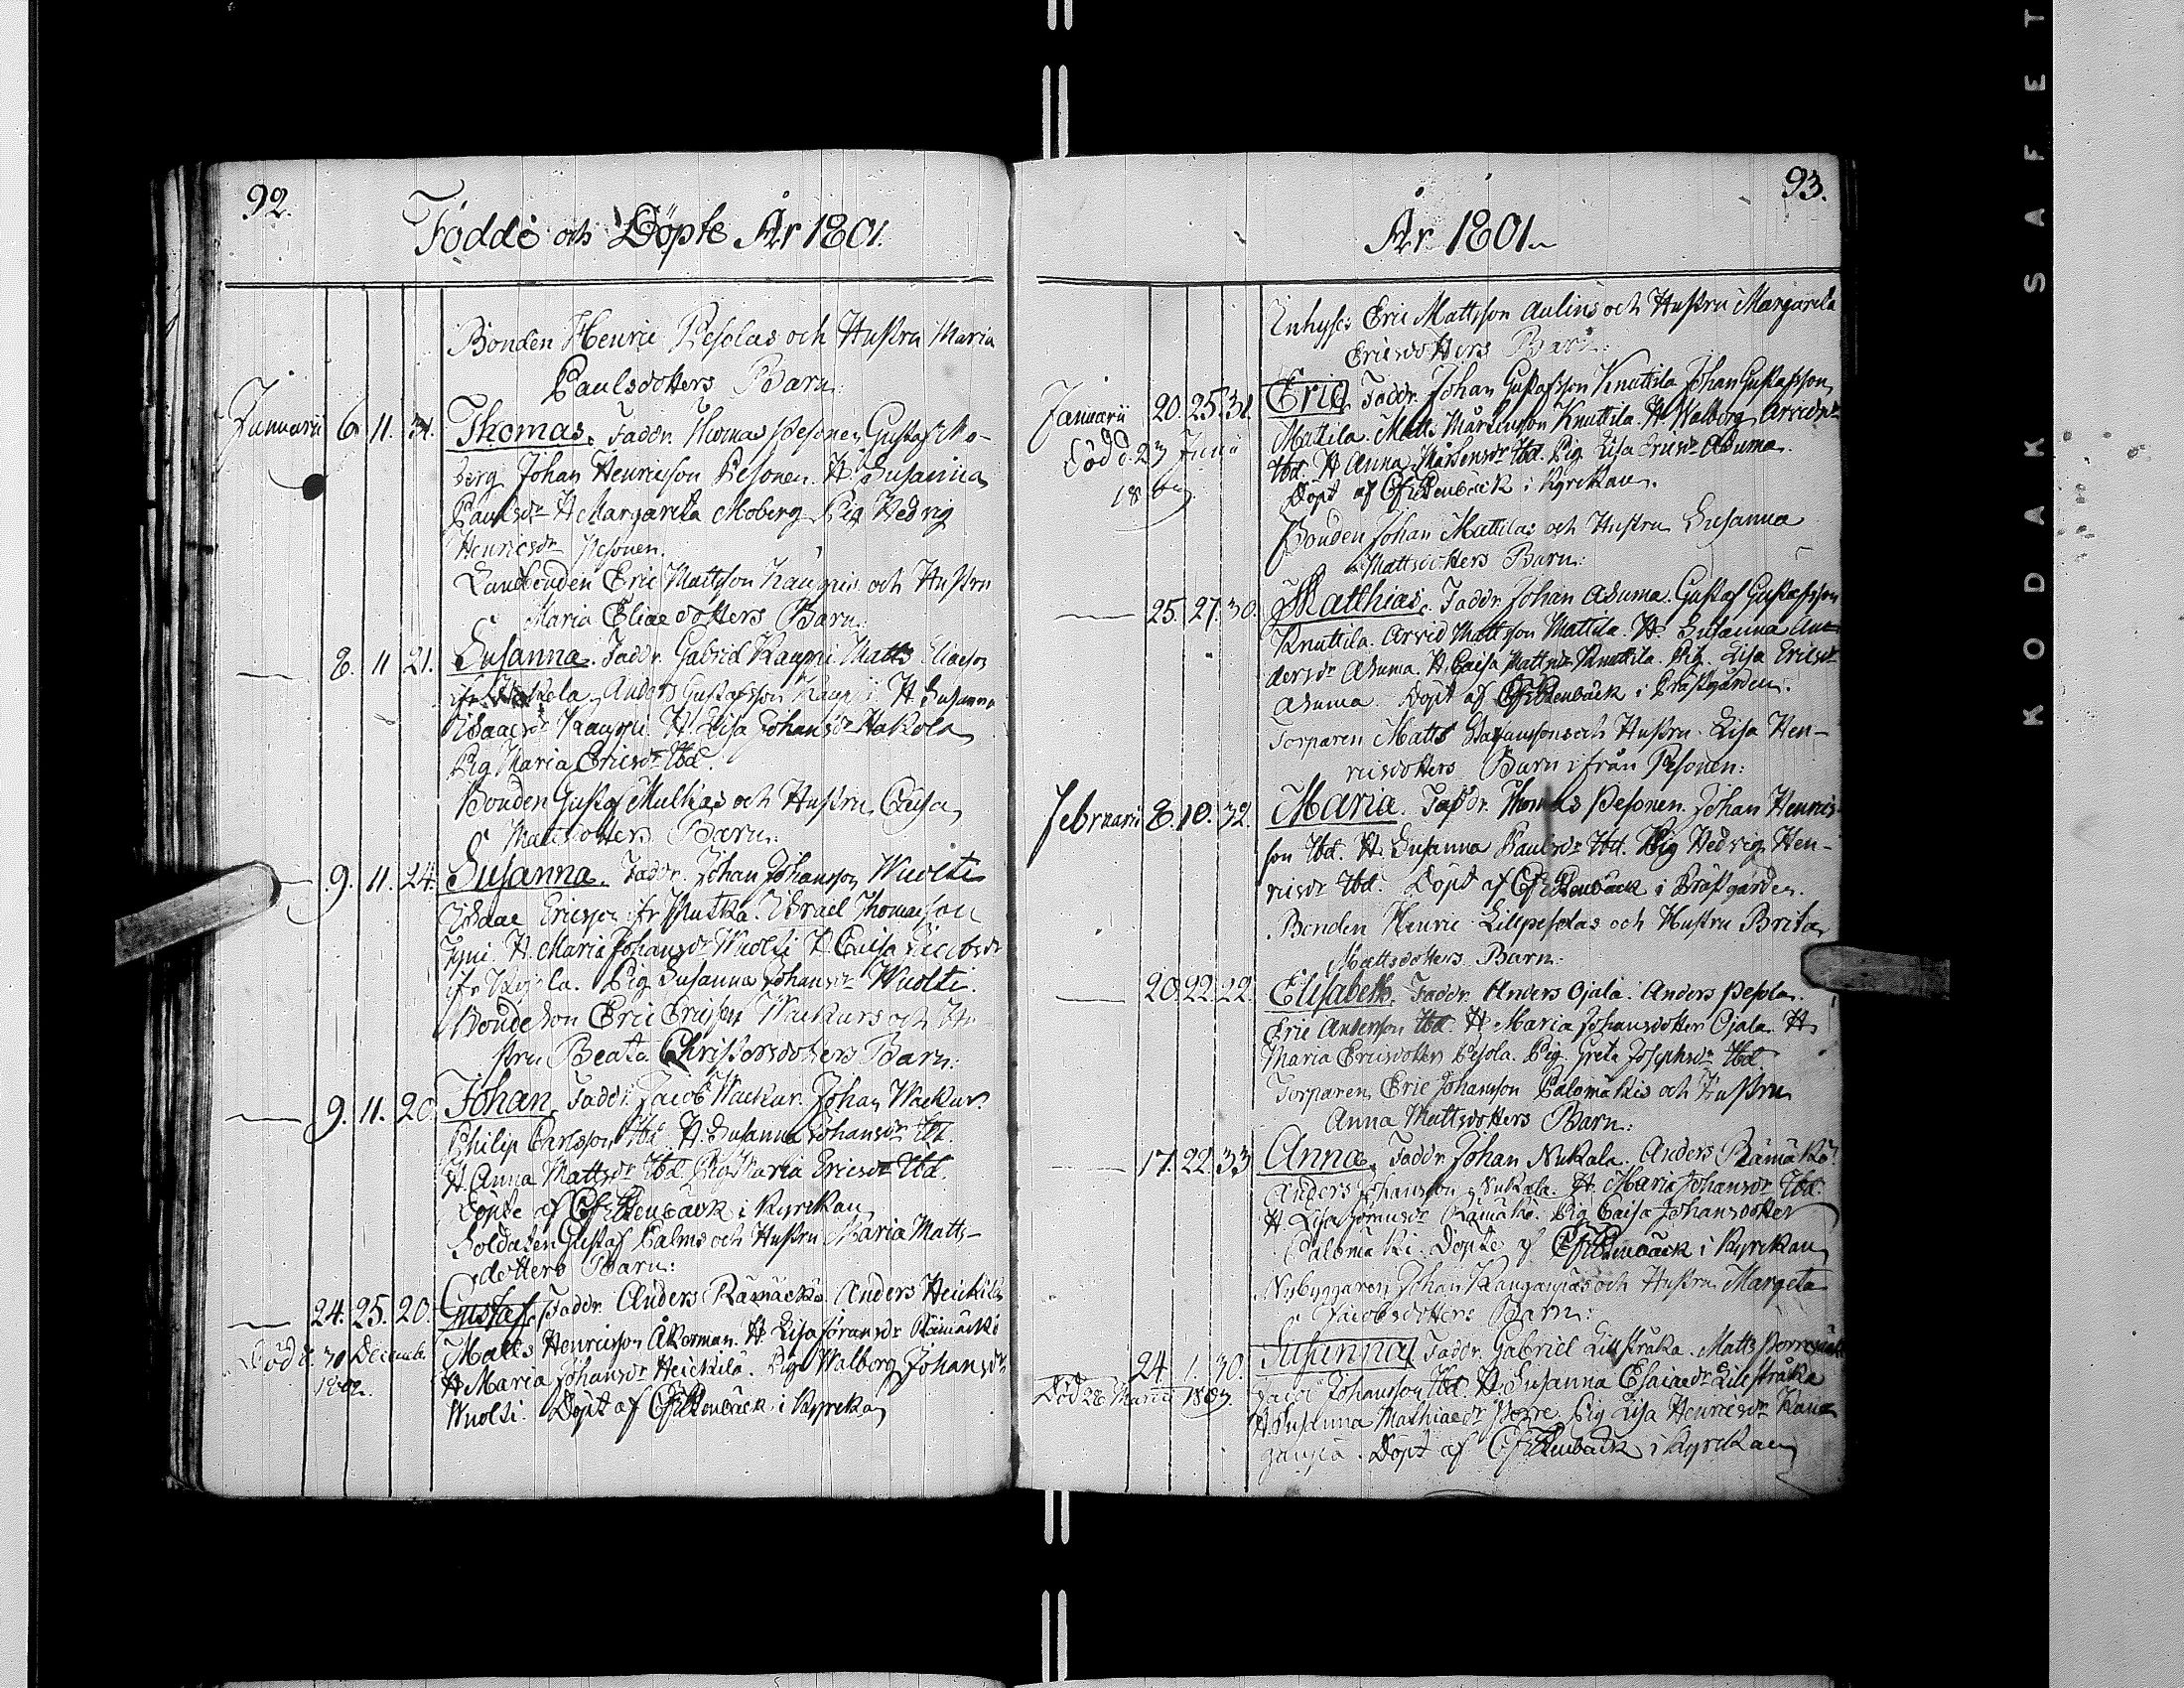 92.
Födde och Döpte År 1801.
Bonden Henric Pesolas och Hustru Maria
Paulsdotters Barn:
Januarii 6. 11. 31. Thomas. Faddr. Thomas Pesonen Gustaf Mo-
berg Johan Henricsson Pesonen. H. Susanna
Paulsdr H Margareta Moberg Pig Hedvig
Henricsdr Pesonen.
Landbonden Eric Mattsson Kauppis och Hustru
Maria Eliaedotters Barn:
8. 11 21. Susanna. Faddr. Gabriel Kauppi Matts Eliaeson
ifr Anders Gustafsson Kauppi H Susanna
Isaacsdr Kauppi. H. Lisa Johansdr Hakola
Pig Maria Ericsdr Ibd.
Bonden Gustaf Mulkas och Hustru Caisa
Mattsdotters Barn:
9. 11. 24. Susanna. Faddr. Johan Johansson Wuolti
Isaac Ericsson ifr Mutka. Israel Thomasson
H. Maria Johansdr Wuolti H Caisa Jacobsdr
ifr Pig Susanna Johansdr Wuolti.
Bondeson Eric Ericsson Wackurs och Hu
stru Beata Christersdotters Barn:
9. 11. 20. Johan. Faddr. Jacob Wackur. Johan Wackur.
Philip Carlsson Ibd H. Susanna Johansdr Ibd.
H. Anna Mattsdr Ibd Pig Maria Ericsdr Ibd.
Döpte af i Kyrckan
Soldaten Gustaf Palms och Hustru Maria Matts-
dotters Barn:
24. 25. 20. Gustaf. Faddr. Anders Rämäckö Anders Heickilä
Död d. 30 Decemb. Matts Henricsson Åkerman. H. Lisa Rämäckö
1802. H Maria Johansdr Heickilä. Pig Walborg Johansdr
Wuolti. Döpt af i Kyrckan
93.
År 1801.
Inhyses Eric Mattsson Aulins och Hustru Margareta
Ericsdotters Barn:
Januarii 20. 25. 31. Eric. Faddr. Johan Gustafsson Knuttila Johan Gustafsson
Död d. 23 Junii Mattila. Matts Mårtensson Knuttila. H. Walborg Arvidsdr
Ibd. H Anna Mårtensdr Ibd. Pig Lisa Ericsdr Asuma.
Döpt af i Kyrckan.
Bonden Johan Mattilas och Hustru Susanna
Mattsdotters Barn:
25. 27. 30. Matthias. Faddr. Johan Asuma. Gustaf Gustafsson
Knuttila. Arvid Mattsson Mattila. H. Susanna An-
dersdr Asuma. H. Caisa Mattsdr Knuttila. Pig. Lisa Ericsdr
Asuma. Döpt af i Prästgården.
Torparen Matts och Hustru Lisa Hen-
ricsdotters Barn ifrån Pesonen:
Februarii 8. 10. 32. Maria. Faddr. Thomas Pesonen. Johan Henrics-
son Ibd. H. Susanna Paulsdr Ibd. Pig Hedvig Hen-
ricsdr Ibd. Döpt af i Prästgården.
Bonden Henric Lillpesolas och Hustru Brita
Mattsdotters Barn:
20. 22. 22. Elisabeth. Faddr. Anders Ojala. Anders Pesola.
Eric Andersson Ibd. H Maria Johansdotter Ojala. H
Maria Ericsdotter Pesola. Pig. Greta Josephsdr Ibd.
Torparen Eric Johansson Palomäkis och Hustru
Anna Mattsdotters Barn:
17. 22. 33 Anna. Faddr. Johan Nukala. Anders Rämäkö
Anders Johansson Nukala. H. Maria Johansdr Ibd.
H. Lisa Rämäkö. Pig Caisa Johansdotter
Palomäki. Döpte af i Kyrckan
Nybyggaren Johan Kangaspääs och Hustru Margeta
Jacobsdotters Barn:
24. 1. 30. Susanna. Faddr. Gabriel Lillstråka. Matts
Död 28 Martii 1803. Johansson Ibd. H. Susanna Esaiaedr Lillstråka
H. Susanna Mathiaedr Porre Pig Lisa Henricsdr Kan
Döpt af i Kyrckan
KODAK SAFET